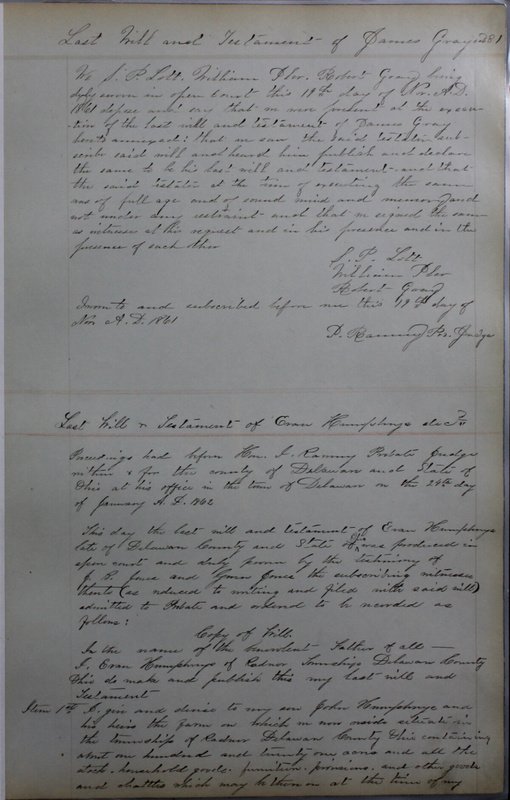 Last Will and Testament of James Gray
We S. P. Lott, William Robert Gray being
duly sworn in open Court this 19th day of Nov. A.D.
1861 depose and say that we were present at the execu-
tion of the last will and testament of James Gray
hereto annexed: that we saw the said testator sub-
scribe said will and heard him publish and declare
the same to be his last will and testament and that
the said testator at the time of executing the same
was of full age and of sound mind and memory and
not under any restraint and that we signed the same
as witnesses at his request and in his presence and in the
presence of each other
S. P. Lott
William
Robert Gray
Sworn to and subscribed before me this 19th day of
Nov A.D. 1861
Ranney Pro. Judge
Last Will & Testament of Evan Humphreys dec'd
Proceedings had before Hon. Ranney Probate Judge
within & for the county of Delaware and State of
Ohio at his office in the town of Delaware on the 24th day
of January A.D. 1862
This day the last will and testament of Evan Humphreys
late of Delaware County and State of Ohio was produced in
open court and duly proven by the testimony of
Jones and Jones the subscribing witnesses
thereto (as reduced to writing and filed with said will)
admitted to Probate and ordered to be recorded as
follows:
Copy of Will.
In the name of the benevolent Father of all —
I, Evan Humphreys of Radnor Township Delaware County
Ohio do make and publish this my last will and
Testament
Item 1st I give and devise to my son John Humphreys and
his heirs the farm on which we now reside situate in
the township of Radnor Delaware County Ohio containing
about one hundred and twenty one acres and all the
stock, household goods, furniture, provisions, and other goods
and chattles which may be thereon at the time of my